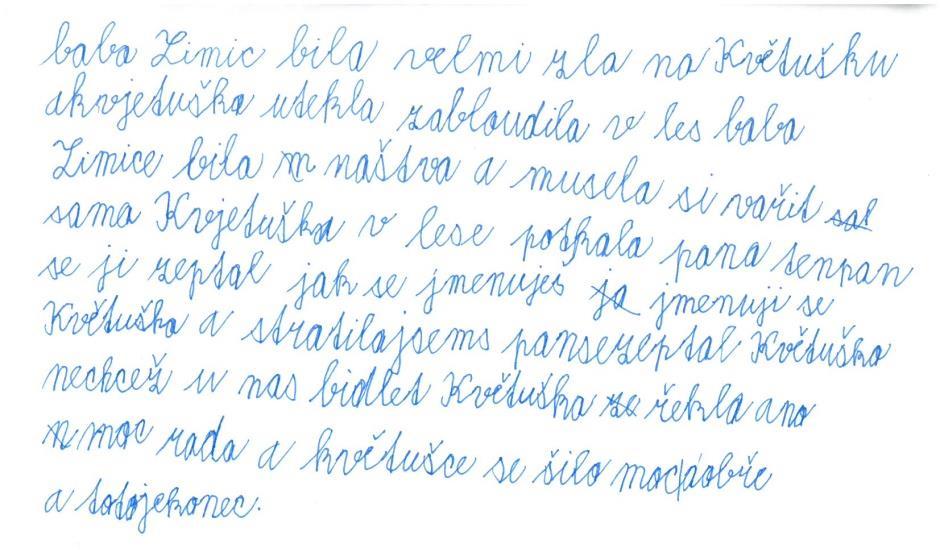 baba Zimic bila velmi zla na Květušku
akvjetuška utekla zabloudila v les baba
Zimice bila naštva a musela si vařit
sama Kvjetuška v lese potkala pana tenpan
se ji zeptal jak se jmenuješ jmenuji se
Květuška a stratilajsems pansezeptal Květuška
nechcež u nas bidlet Květuška řekla ano
moc rada a květušce se šilo mocdobře
a totojekonec.